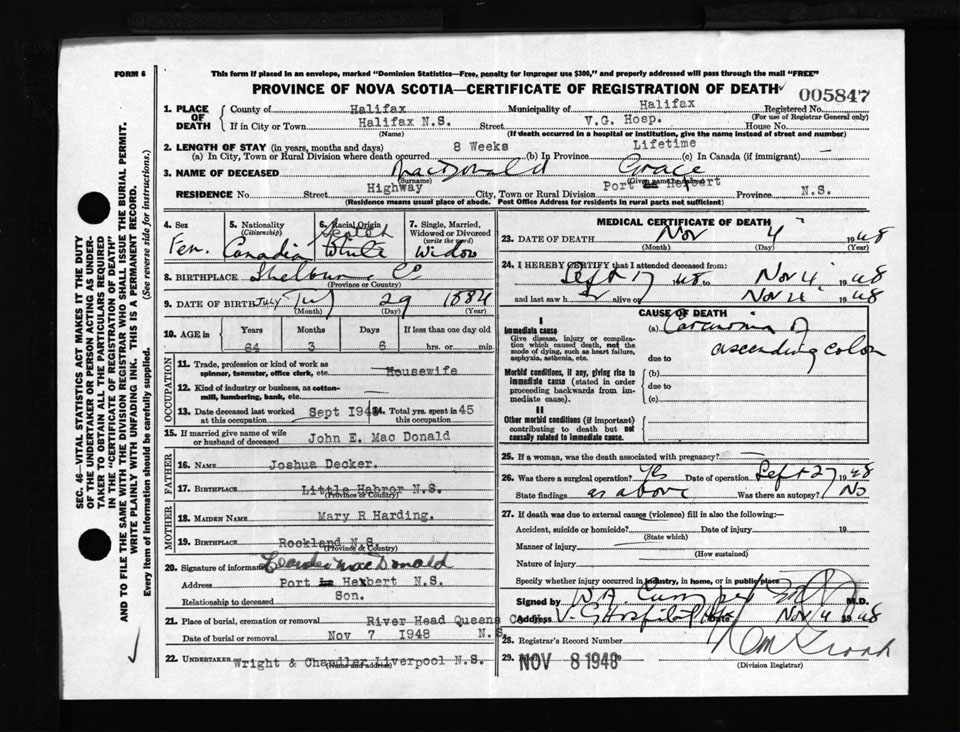 FORM 6
This form if placed in an envelope, marked "Dominion Statistics—Free, penalty for improper use $300," and properly addressed will pass through the mail "FREE"
PROVINCE OF NOVA SCOTIA—CERTIFICATE OF REGISTRATION OF DEATH
005847
1. PLACE OF DEATH County of Halifax Municipality of Halifax Registered No.
(For use of Registrar General only)
If in City or Town Halifax N.S. Street V.G. Hosp. House No.
(Name) (If death occurred in a hospital or institution, give the name instead of street and number)
2. LENGTH OF STAY (in years, months and days)
(a) In City, Town or Rural Division where death occurred 8 Weeks (b) In Province Lifetime (c) In Canada (if immigrant) —
3. NAME OF DECEASED MacDonald Grace
(Surname) (Given name)
RESIDENCE No. Street Highway City, Town or Rural Division Port Hebert Province N.S.
(Residence means usual place of abode. Post Office Address for residents in rural parts not sufficient)
4. Sex 5. Nationality 6. Racial Origin 7. Single, Married, Widowed or Divorced
(Citizenship) (write the word)
Scotch
Fem. Canadian White Widow
8. BIRTHPLACE Shelburne Co
(Province or Country)
9. DATE OF BIRTH July July 29 1884
(Month) (Day) (Year)
10. AGE in Years Months Days If less than one day old
64 3 6 hrs. or min.
OCCUPATION
11. Trade, profession or kind of work as spinner, teamster, office clerk, etc. Housewife
12. Kind of industry or business, as cotton-mill, lumbering, bank, etc.
13. Date deceased last worked at this occupation Sept 1948 14. Total yrs. spent in this occupation 45
15. If married give name of wife or husband of deceased John E. Mac Donald
FATHER
16. NAME Joshua Decker.
17. BIRTHPLACE Little Habror N.S.
(Province or Country)
MOTHER
18. MAIDEN NAME Mary R Harding.
19. BIRTHPLACE Rockland N.S.
(Province & Country)
20. Signature of informant MacDonald
Address Port Hebert N.S.
Relationship to deceased Son.
21. Place of burial, cremation or removal River Head Queens Co
Date of burial or removal Nov 7 1948 N.S.
22. UNDERTAKER Wright & Chandler Liverpool N.S.
(Name and address)
MEDICAL CERTIFICATE OF DEATH
23. DATE OF DEATH Nov 4 1948
(Month) (Day) (Year)
24. I HEREBY CERTIFY that I attended deceased from:
Sept 17 1948 to Nov 4 1948
and last saw her alive on Nov 4 1948
CAUSE OF DEATH
I
Immediate cause (a) Carcinoma of
Give disease, injury or complication which caused death, not the mode of dying, such as heart failure, asphyxia, asthenia, etc.
ascending colon
due to
Morbid conditions, if any, giving rise to immediate cause (stated in order proceeding backwards from immediate cause).
(b)
due to
(c)
II
Other morbid conditions (if important) contributing to death but not causally related to immediate cause.
25. If a woman, was the death associated with pregnancy? —
26. Was there a surgical operation? Yes Date of operation Sept 27 1948
State findings as above Was there an autopsy? No
27. If death was due to external causes (violence) fill in also the following:—
Accident, suicide or homicide? Date of injury 19
(State which)
Manner of injury
(How sustained)
Nature of injury
Specify whether injury occurred in industry, in home, or in public place
Signed by M.D.
V. G. Hospital Hfx Date Nov 4 1948
28. Registrar's Record Number
29. NOV 8 1948
(Division Registrar)
SEC. 46—VITAL STATISTICS ACT MAKES IT THE DUTY
OF THE UNDERTAKER OR PERSON ACTING AS UNDER-
TAKER TO OBTAIN ALL THE PARTICULARS REQUIRED
IN THE "CERTIFICATE OF REGISTRATION OF DEATH"
AND TO FILE THE SAME WITH THE DIVISION REGISTRAR WHO SHALL ISSUE THE BURIAL PERMIT.
WRITE PLAINLY WITH UNFADING INK. THIS IS A PERMANENT RECORD.
Every item of information should be carefully supplied. (See reverse side for instructions.)